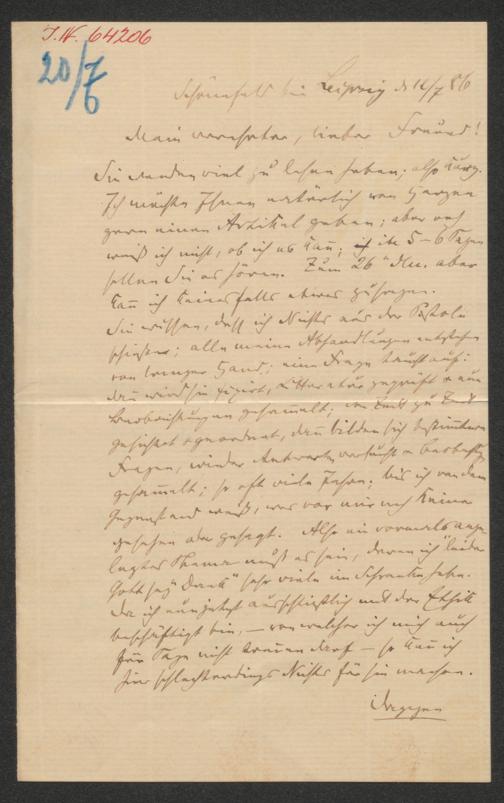 I.N. 64206
20/7 6
Schönefeld bei Leipzig d 16/7 86
Mein verehrter, lieber Freund!
Sie werden viel zu lesen haben; also kurz.
Ich möchte Ihnen natürlich von Herzen
gern einen Artikel geben; aber noch
weiß ich nicht, ob ich es kann; in 5–6 Tagen
sollen Sie es hören. Zum 26 d. M. aber
kann ich keinesfalls etwas zusagen.
Sie wissen, daß ich Nichts aus der Pistole
schieße; alle meine Abhandlungen entstehen
von langer Hand; eine Frage taucht auf;
dann wird sie fixirt, Litteratur geprüft u. nun
Beobachtungen gesammelt; von Zeit zu Zeit
gesichtet u geordnet, dann bilden sich bestimmtere
Fragen, wieder Antworten versucht u Beobachtg
gesammelt; so oft viele Jahre; bis ich von dem
Gegenstand weiß, was vor mir noch Keiner
gesehen oder gesagt. Also ein vormals ange-
legtes Thema muß es sein, deren ich "leider
Gott sey Dank" sehr viele im Schranke habe.
Da ich nun jetzt ausschließlich mit der Ethik
beschäftigt bin, – von welcher ich mich auch
für Tage nicht trennen darf – so kann ich
hier schlechterdings Nichts für sie machen.
Dagegen